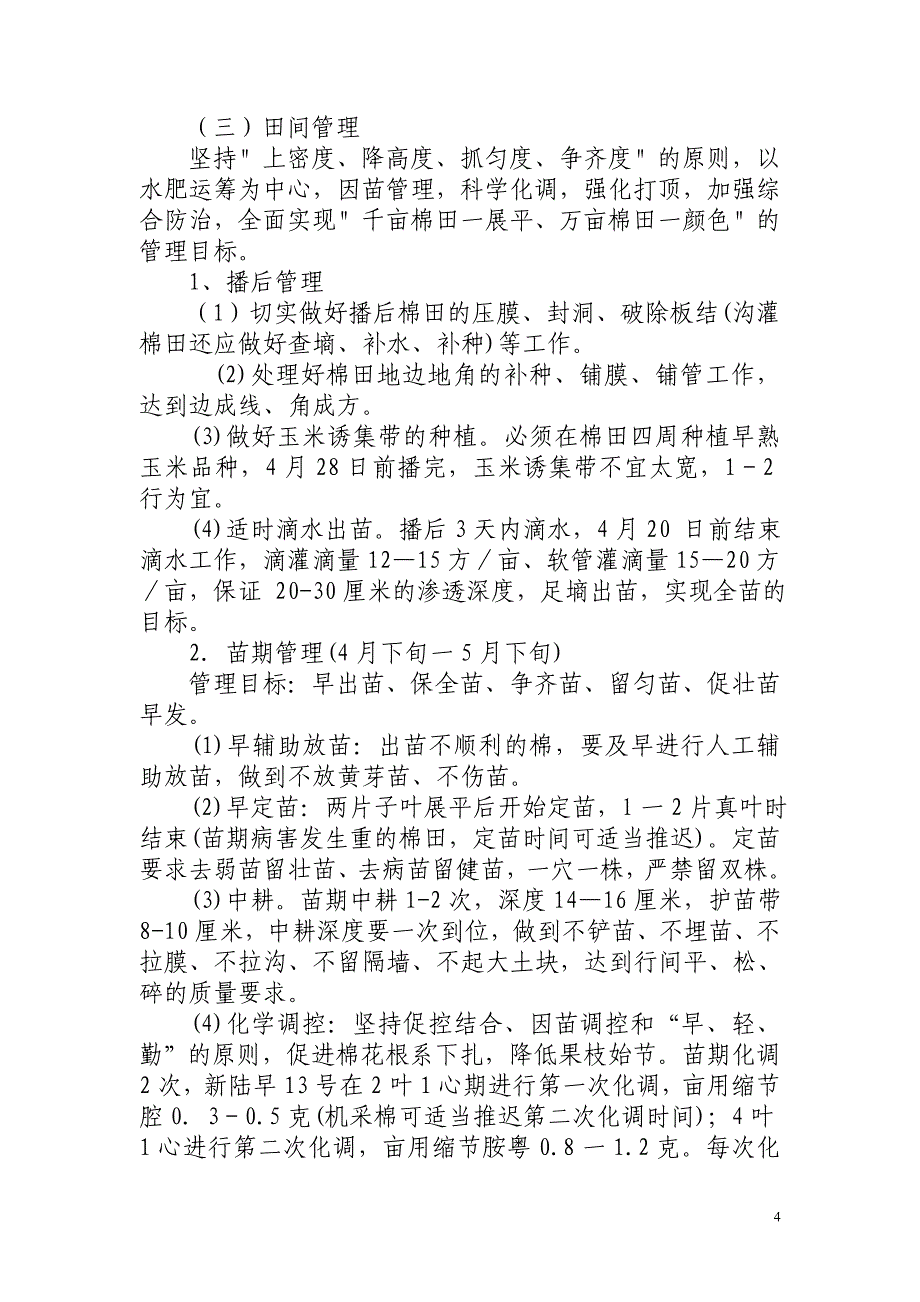 （三）田间管理
坚持"上密度、降高度、抓匀度、争齐度"的原则，以
水肥运筹为中心，因苗管理，科学化调，强化打顶，加强综
合防治，全面实现"千亩棉田一展平、万亩棉田一颜色"的
管理目标。
1、播后管理
（1)切实做好播后棉田的压膜、封洞、破除板结(沟灌
棉田还应做好查墒、补水、补种)等工作。
(2)处理好棉田地边地角的补种、铺膜、铺管工作，
达到边成线、角成方。
(3)做好玉米诱集带的种植。必须在棉田四周种植早熟
玉米品种，4月28日前播完，玉米诱集带不宜太宽，1-2
行为宜。
(4)适时滴水出苗。播后3天内滴水，4月20 日前结束
滴水工作，滴灌滴量12—15方／亩、软管灌滴量15—20方
／亩，保证 20-30厘米的渗透深度，足墒出苗，实现全苗的
目标。
2．苗期管理(4月下旬一5月下旬)
管理目标：早出苗、保全苗、争齐苗、留匀苗、促壮苗
早发。
(1)早辅助放苗：出苗不顺利的棉，要及早进行人工辅
助放苗，做到不放黄芽苗、不伤苗。
(2)早定苗：两片子叶展平后开始定苗，1一2片真叶时
结束(苗期病害发生重的棉田，定苗时间可适当推迟)。定苗
要求去弱苗留壮苗、去病苗留健苗，一穴一株，严禁留双株。
(3)中耕。苗期中耕1-2次，深度14—16厘米，护苗带
8-10厘米，中耕深度要一次到位，做到不铲苗、不埋苗、不
拉膜、不拉沟、不留隔墙、不起大土块，达到行间平、松、
碎的质量要求。
(4)化学调控：坚持促控结合、因苗调控和“早、轻、
勤”的原则，促进棉花根系下扎，降低果枝始节。苗期化调
2次，新陆早13号在2叶1心期进行第一次化调，亩用缩节
腔0．3-0.5克(机采棉可适当推迟第二次化调时间)；4叶
1心进行第二次化调，亩用缩节胺粤0.8一1.2克。每次化
4